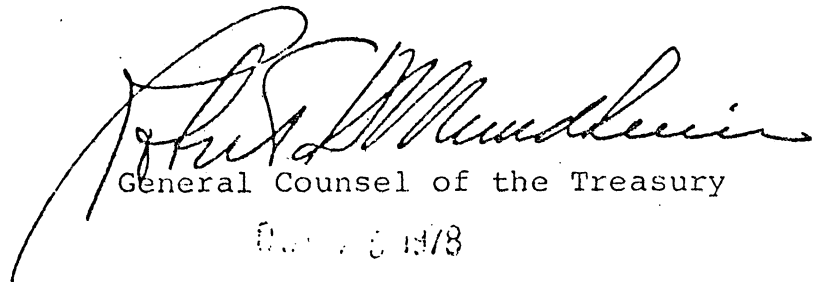 Robert H Mundheim
General Counsel of the Treasury
1978